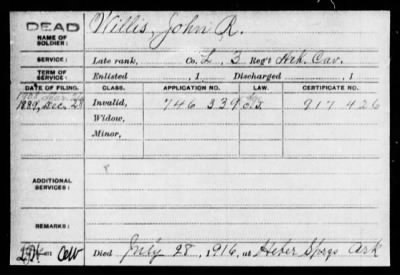 DEAD
NAME OF SOLDIER:
Willis, John R.
SERVICE:
Late rank, Co. L, 3 Reg't Ark. Cav.
TERM OF SERVICE:
Enlisted , 1 Discharged , 1
DATE OF FILING. CLASS. APPLICATION NO. LAW. CERTIFICATE NO.
1889, Dec. 28 Invalid, 746 339 917 426
Widow,
Minor,
ADDITIONAL SERVICES:
REMARKS:
Died July 28, 1916, at Heber Spgs Ark